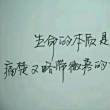 生命的本质是
痛楚又略带微凉的